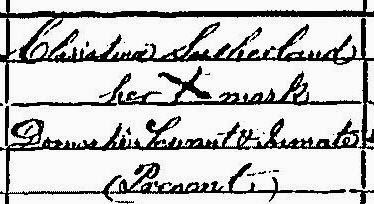 Christina Sutherland
her X mark
Domestic Servant & Inmate
(Present)